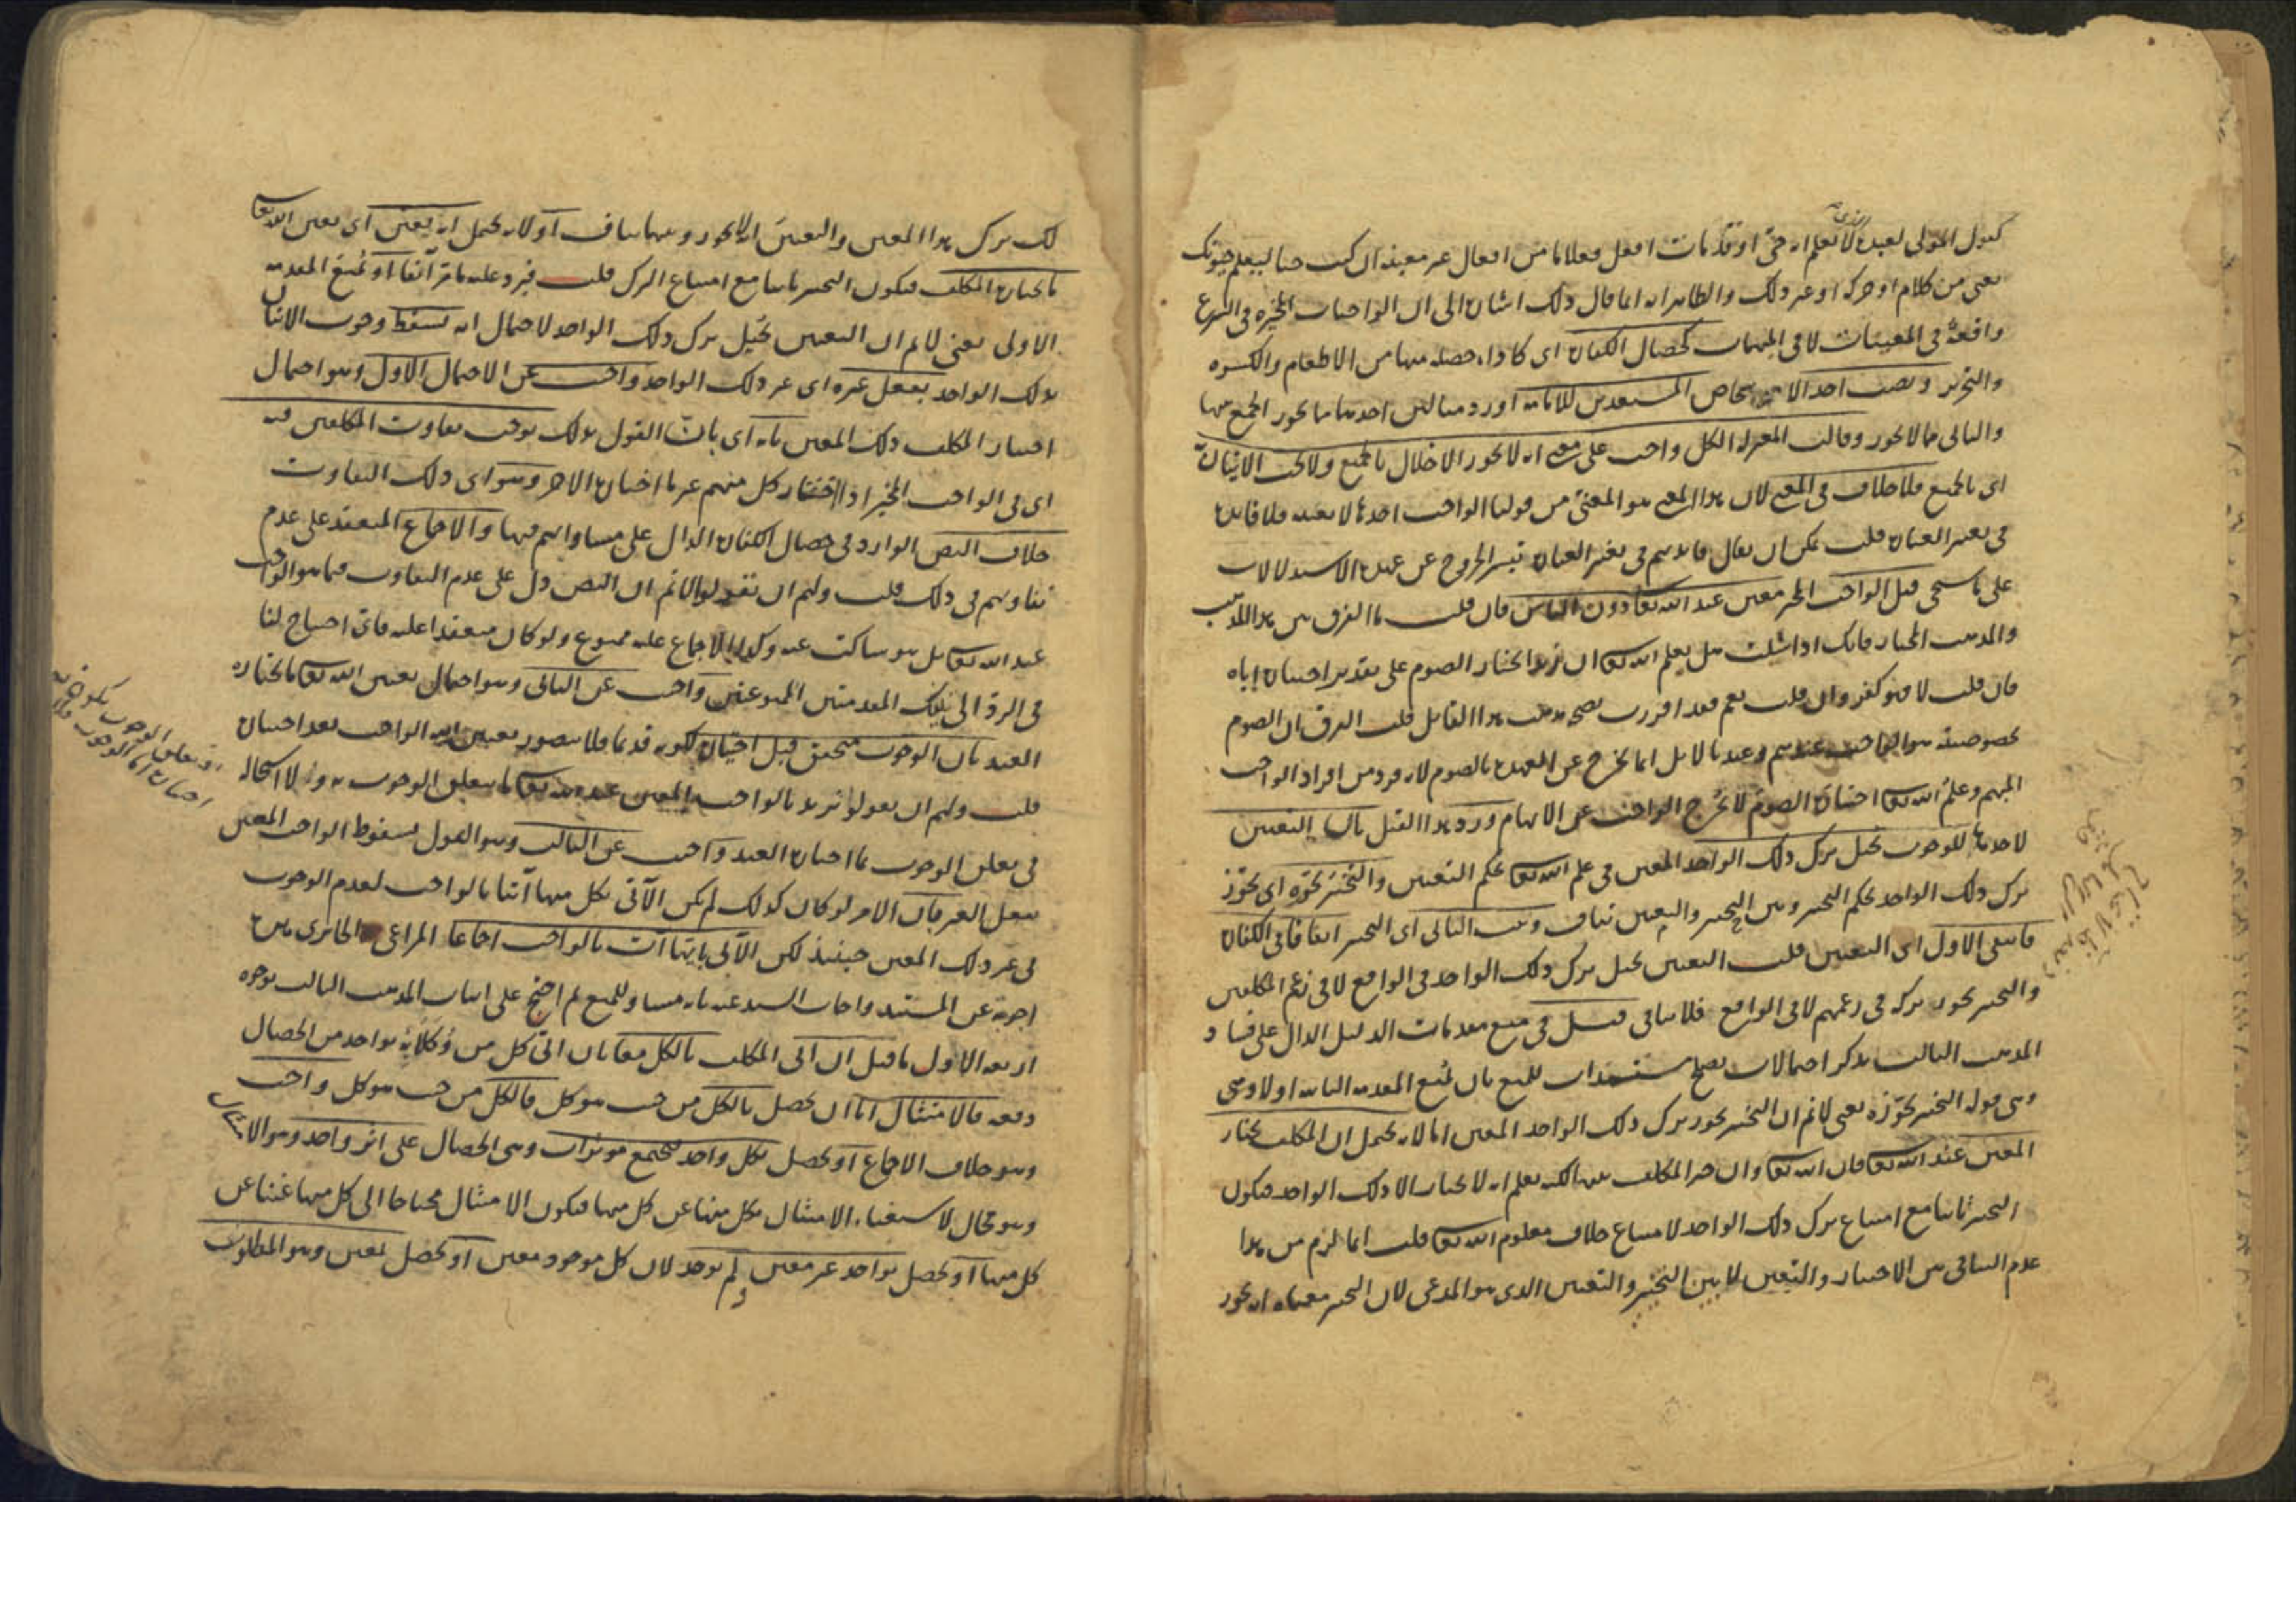 كقول المولى لعبده الذي لا يعلم انه حي او قد مات افعل فعلا ما من افعال غير معينة ان كنت حيا ليعلم حيوتك
يعني من كلام او حركة او غير ذلك والظاهر انه انما قال ذلك اشارة الى ان الواجبات المخيرة في الشرع
واقعة في المعينات لا في المبهمات كخصال الكفارة اى كاداء خصلة منها من الاطعام والكسوة
والتحرير ونصب احد الاشخاص المستعدين للامامة اورد مثالين احدهما مما يجوز الجمع منها
والثاني مما لا يجوز وقالت المعتزلة الكل واجب على معنى انه لا يجوز الاخلال بالجميع ولا يجب الاتيان به
اى بالجميع فلا خلاف في المعنى لان هذا المعنى هو المعنى من قولنا الواجب احدها لا بعينه فلا فائدة
في تغيير العبارة قلت يمكن ان يقال فائدتهم في تغيير العبارة تيسر الخروج عن عهدة الاستدلالات
على ما سيجئ قيل الواجب المخير معين عند الله تعا دون الناس فان قلت ما الفرق بين هذا المذهب
والمذهب المختار فانك اذا سئلت هل يعلم الله تعا ان زيدا يختار الصوم على تقدير اختياره اياه
فان قلت لا فهو كفر وان قلت نعم فقد اقررت بصحة مذهب هذا القائل قلت الفرق ان الصوم
بخصوصيته هو الواجب عندهم وعندنا لا بل انما يخرج عن العهدة بالصوم لانه فرد من افراد الواجب
المبهم وعلم الله تعا اختياره الصوم لا يخرج الواجب عن الابهام ورد هذا القيل بان التعيين
لاحدها للوجوب يحيل ترك ذلك الواحد المعين في علم الله تعا بحكم التعيين والتخيير يجوزه اى يجوز
ترك ذلك الواحد بحكم التخيير وبين التخيير والتعيين تناف وثبت الثاني اى التخيير اتفاقا في الكفارة
فانتفى الاول اى التعيين قلت التعيين يحيل ترك ذلك الواحد في الواقع لا في زعم المكلفين
والتخيير يجوز تركه في زعمهم لا في الواقع فلا تنافي قيل في منع مقدمات الدليل الدال على فساد
المذهب الثالث بذكر احتمالات يصلح مستندات للمنع بان يمنع المقدمة الثانية اولا وهي
وهي قوله التخيير يجوزه يعني لا نم ان التخيير يجوز ترك ذلك الواحد المعين انما لانه يحتمل ان المكلف يختار
المعين عند الله تعا فان الله تعا وان خير المكلف بين لكنه يعلم انه لا يختار الا ذلك الواحد فيكون
التخيير ثابتا مع امتناع ترك ذلك الواحد لامتناع خلاف معلوم الله تعا قلت انما لزم من هذا
عدم التنافي بين الاختيار والتعيين لا بين التخيير والتعيين الذي هو المدعى لان التخيير معناه انه يجوز
لك ترك هذا المعين والتعيين انه لا يجوز وبينهما تناف او لانه يحتمل انه يعين اى يعين الله تعا
باختيار المكلف فيكون التخيير ثابتا مع امتناع الترك قلت فيرد عليه ما مر آنفا او تمنع المقدمة
الاولى يعني لا نم ان التعيين يحيل ترك ذلك الواحد لاحتمال انه يسقط وجوب الاتيان
بذلك الواحد بفعل غيره اى غير ذلك الواحد واجيب عن الاحتمال الاول وهو احتمال
اختيار المكلف ذلك المعين بانه اى بان القول بذلك يوجب تفاوت المكلفين فيه
اى في الواجب المخير اذا اختار كل منهم غير ما اختاره الاخر وهو اى ذلك التفاوت
خلاف النص الوارد في خصال الكفارة الدال على مساواتهم فيها والاجماع المنعقد على عدم
تفاوتهم في ذلك قلت ولهم ان يقولوا لا نم ان النص دل على عدم التفاوت فيما هو الواجب
عند الله تعا بل هو ساكت عنه وكذا الاجماع عليه ممنوع ولو كان منعقدا عليه فاى احتياج لنا
في الرد الى تلك المقدمتين الممنوعتين واجيب عن الثاني وهو احتمال تعيين الله تعا ما يختاره
العبد بان الوجوب متحقق قبل اختياره لكونه قديما فلا يتصور تعيين الله الواجب بعد اختياره
قلت ولهم ان يقولوا نريد بالواجب المعين عند الله تعا ما يتعلق الوجوب به ولا استحالة
في تعلق الوجوب بما اختاره العبد واجيب عن الثالث وهو القول بسقوط الواجب المعين
بفعل الغير فان الامر لو كان كذلك لم يكن الآتي بكل منها آتيا بالواجب لعدم الوجوب
في غير ذلك المعين حينئذ لكن الآتي بايتها آت بالواجب اجماعا
اجوبة عن المستند واجاب السيد عنه بانه مساو للمنع ثم احتج على اثبات المذهب الثالث بوجوه
اربعة الاول ما قيل ان اتى المكلف بالكل معا بان اتى كل من وكلائه بواحد من الخصال
دفعة فالامتثال اما ان يحصل بالكل من حيث هو كل فالكل من حيث هو كل واجب
وهو خلاف الاجماع او يحصل بكل واحد فتجتمع مؤثرات وهي الخصال على اثر واحد وهو الامتثال
وهو محال لاستغناء الامتثال بكل منها عن كل منها فيكون الامتثال محتاجا الى كل منها غنيا عن
كل منها او يحصل بواحد غير معين ولم يوجد لان كل موجود معين او يحصل بمعين وهو المطلوب